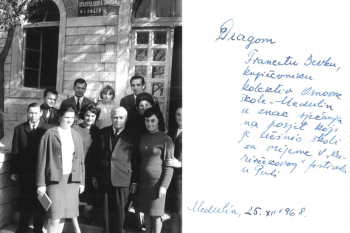 Dragom
Francetu Bevku,
književniku
kolektiv Osnovne
škole - Medulin
u znak sjećanja
na posjet koji
je učinio školi
za vrijeme V „Ku-
rirčkovog" festivala
u Puli
Medulin, 25. XII 1968.